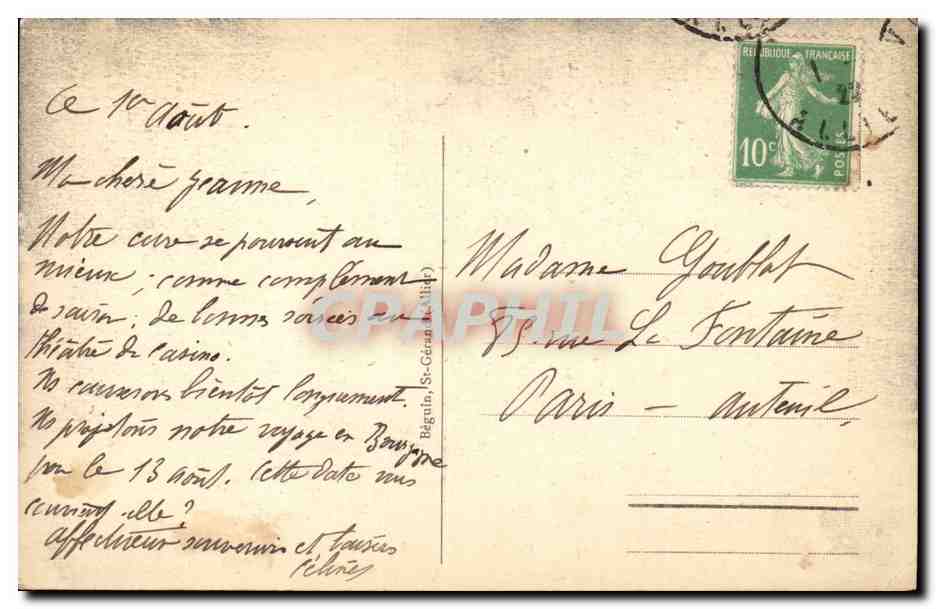 Ce 1er Août.
Ma chère Jeanne,
Notre cure se poursuit au
mieux ; comme complément
de saison, de bonnes soirées au
théâtre du casino.
Ns causerons bientôt longuement.
Ns projetons notre voyage en Bourgogne
pour le 13 août. Cette date vous
convient-elle ?
Affectueux souvenirs et baisers
Béguin, St-Gérand (Allier)
REPUBLIQUE FRANÇAISE
10c
POSTES
Madame Goublot
rue La Fontaine
Paris - Auteuil
CPAPHIL